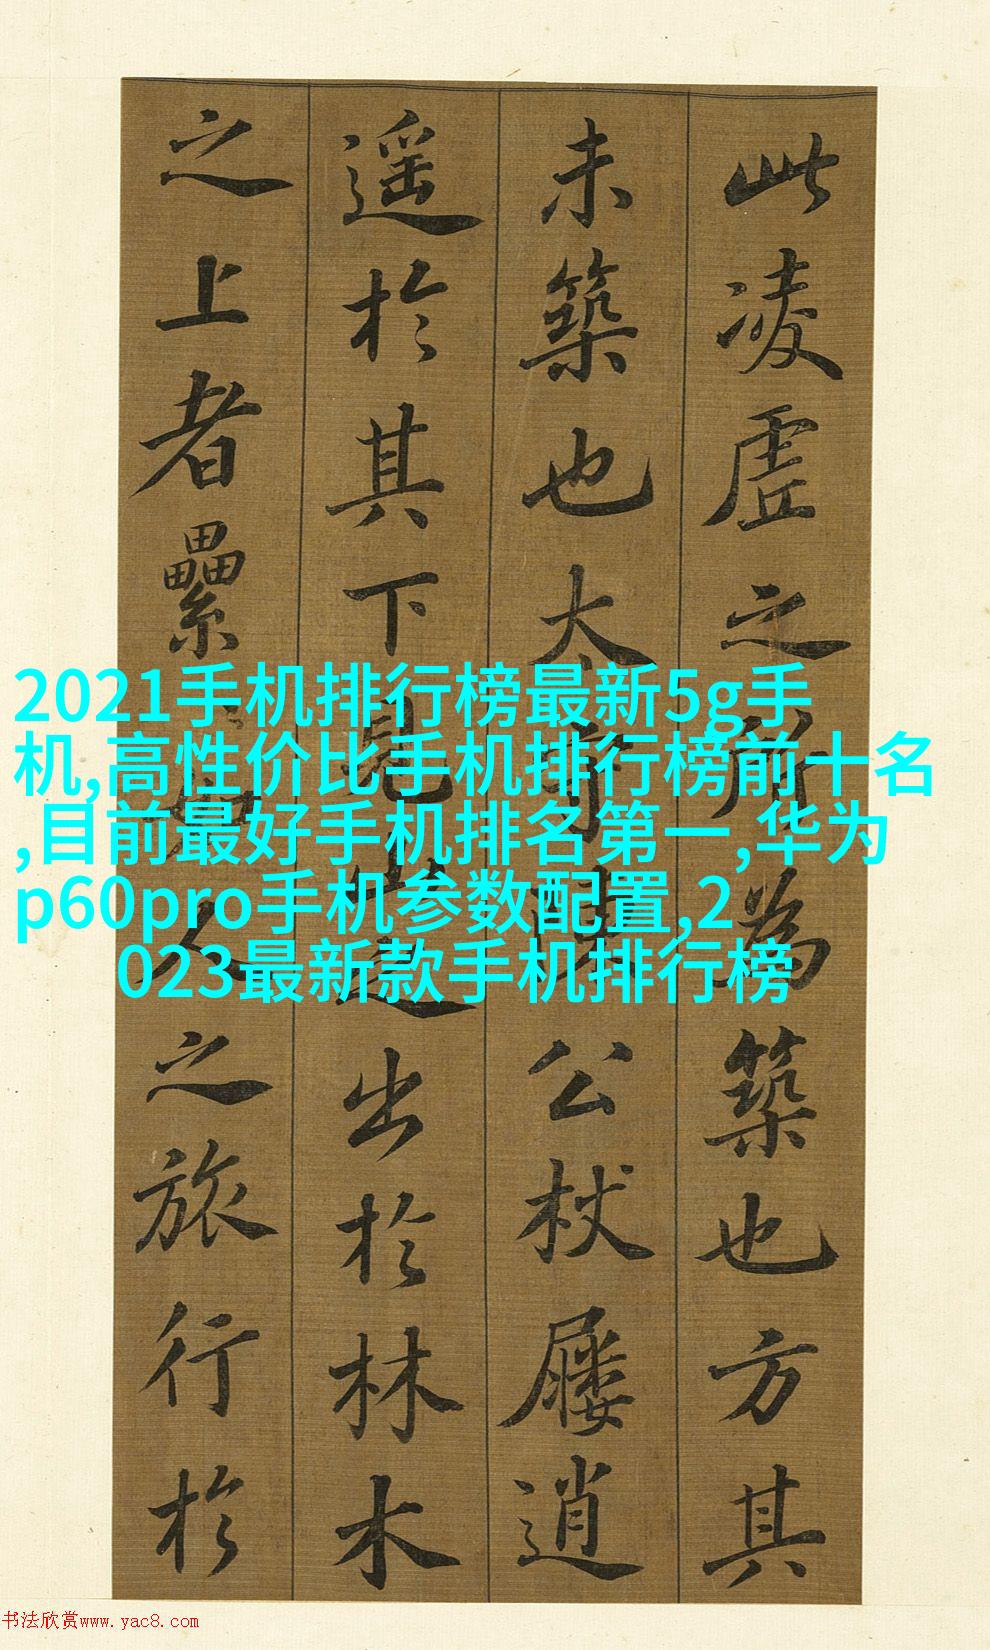 此凌虛之所為築也方其
未築也太守陳公杖屨逍
遥於其下見山之出於林木
之上者纍如人之旅行於
2021手机排行榜最新5g手
机,高性价比手机排行榜前十名
,目前最好手机排名第一,华为
p60pro手机参数配置,2
023最新款手机排行榜
书法欣赏www.yac8.com